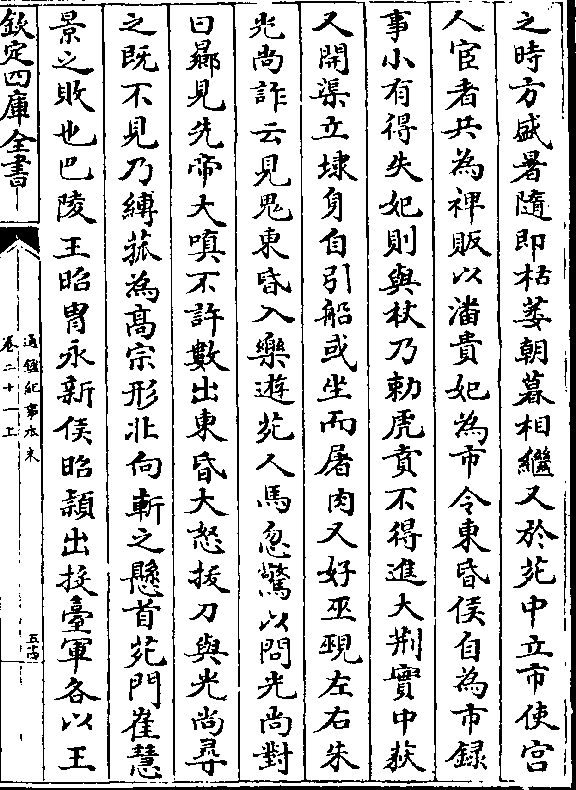 之時方盛暑隨即枯萎朝暮相繼又於苑中立市使宮
人宦者共為裨販以潘貴妃為市令東昏侯自為市録
事小有得失妃則與杖乃勅虎賁不得進大荆實中荻
又開渠立埭身自引船或坐而屠肉又好巫覡左右朱
光尚詐云見鬼東昏入樂遊苑人馬忽驚以問光尚對
曰曏見先帝大嗔不許數出東昏大怒拔刀與光尚尋
之既不見乃縛菰為髙宗形北向斬之懸首苑門崔慧
景之敗也巴陵王昭胄永新侯昭頴出投臺軍各以王
欽定四庫全書
通鑑紀事本末
卷二十一上